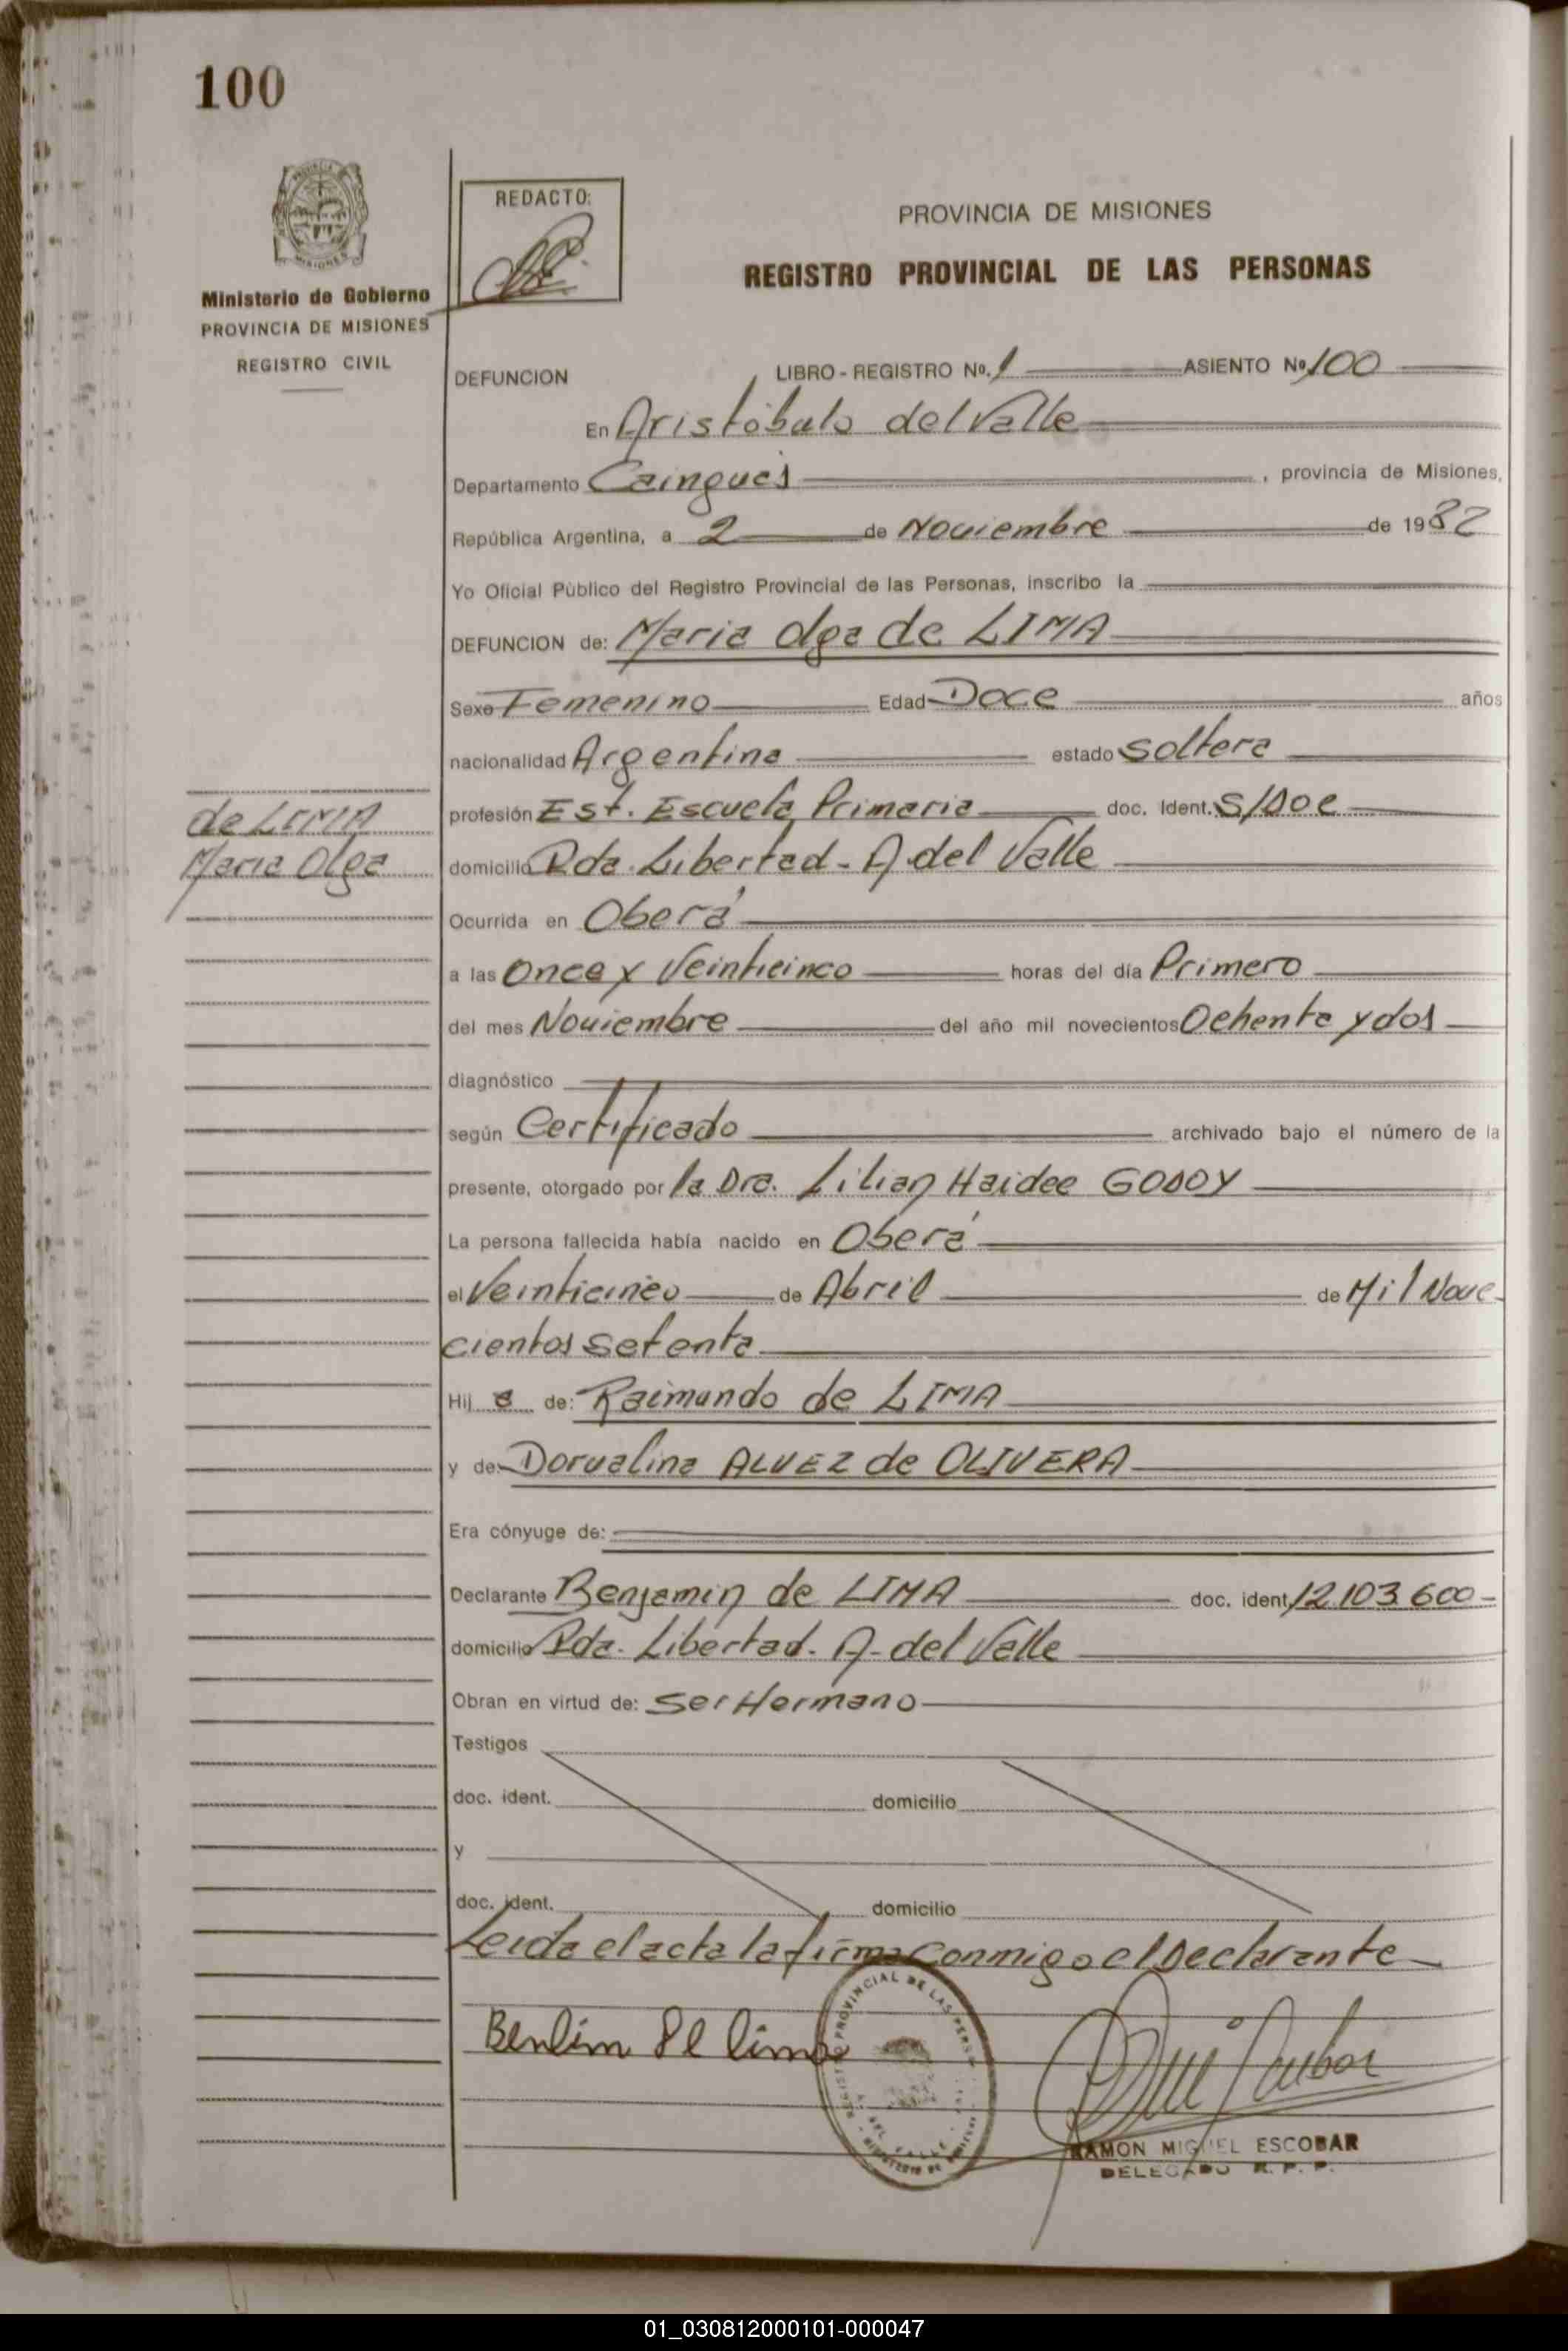 100
REDACTO:
PROVINCIA DE MISIONES
REGISTRO PROVINCIAL DE LAS PERSONAS
Ministerio de Gobierno
PROVINCIA DE MISIONES
REGISTRO CIVIL
DEFUNCION LIBRO - REGISTRO No. 1 ASIENTO No 100
En Aristóbulo del Valle
Departamento Cainguás, provincia de Misiones,
República Argentina, a 2 de Noviembre de 1982
Yo Oficial Público del Registro Provincial de las Personas, inscribo la
DEFUNCION de: Maria Olga de LIMA
Sexo Femenino Edad Doce años
nacionalidad Argentina estado soltera
profesión Est. Escuela Primaria doc. Ident. S/Doc
de LIMA
Maria Olga
domicilio Pda. Libertad - A. del Valle
Ocurrida en Oberá
a las Once y Veinticinco horas del día Primero
del mes Noviembre del año mil novecientos Ochenta y dos
diagnóstico
según Certificado archivado bajo el número de la
presente, otorgado por la Dra. Lilian Haidee GODOY
La persona fallecida había nacido en Oberá
el Veinticinco de Abril de Mil Nove-
cientos setenta
Hij a de: Raimundo de LIMA
y de Dorvalina ALVEZ de OLIVERA
Era cónyuge de:
Declarante Benjamin de LIMA doc. ident. 12.103.600-
domicilio Pda. Libertad. A. del Valle
Obran en virtud de: ser Hermano
Testigos
doc. ident. domicilio
y
doc. ident. domicilio
Leida el acta la firma conmigo el Declarante
REGISTRO PROVINCIAL DE LAS PERS
A. DEL VALLE
RAMON MIGUEL ESCOBAR
DELEGADO R. P. P.
01_030812000101-000047